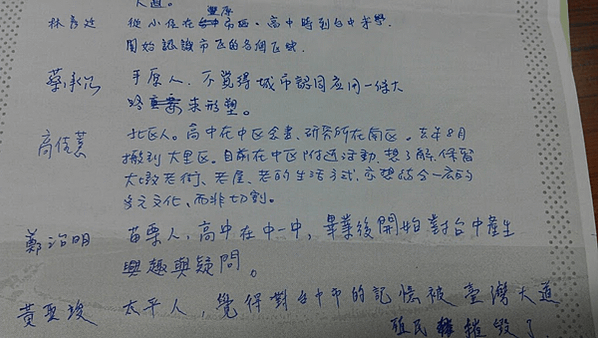 大道。
林彥廷 從小住在豐原市區。高中時到台中求學
開始認識市區的各個區域
蔡承允 豐原人、不覺得城市認同應用一條大
路來形塑。
高倩慧 北區人。高中在中區念書、研究所在南區。去年8月
搬到大里區。目前在中區附近活動、想了解、保留
大墩老街、老屋、老的生活方式、亦想結合一店的
多元文化、而非切割。
鄭治明 苗栗人,高中在中一中,畢業後開始對台中產生
興趣與疑問。
黃聖竣 太平人,覺得對台中市的記憶被臺灣大道
殖民 摧毀了